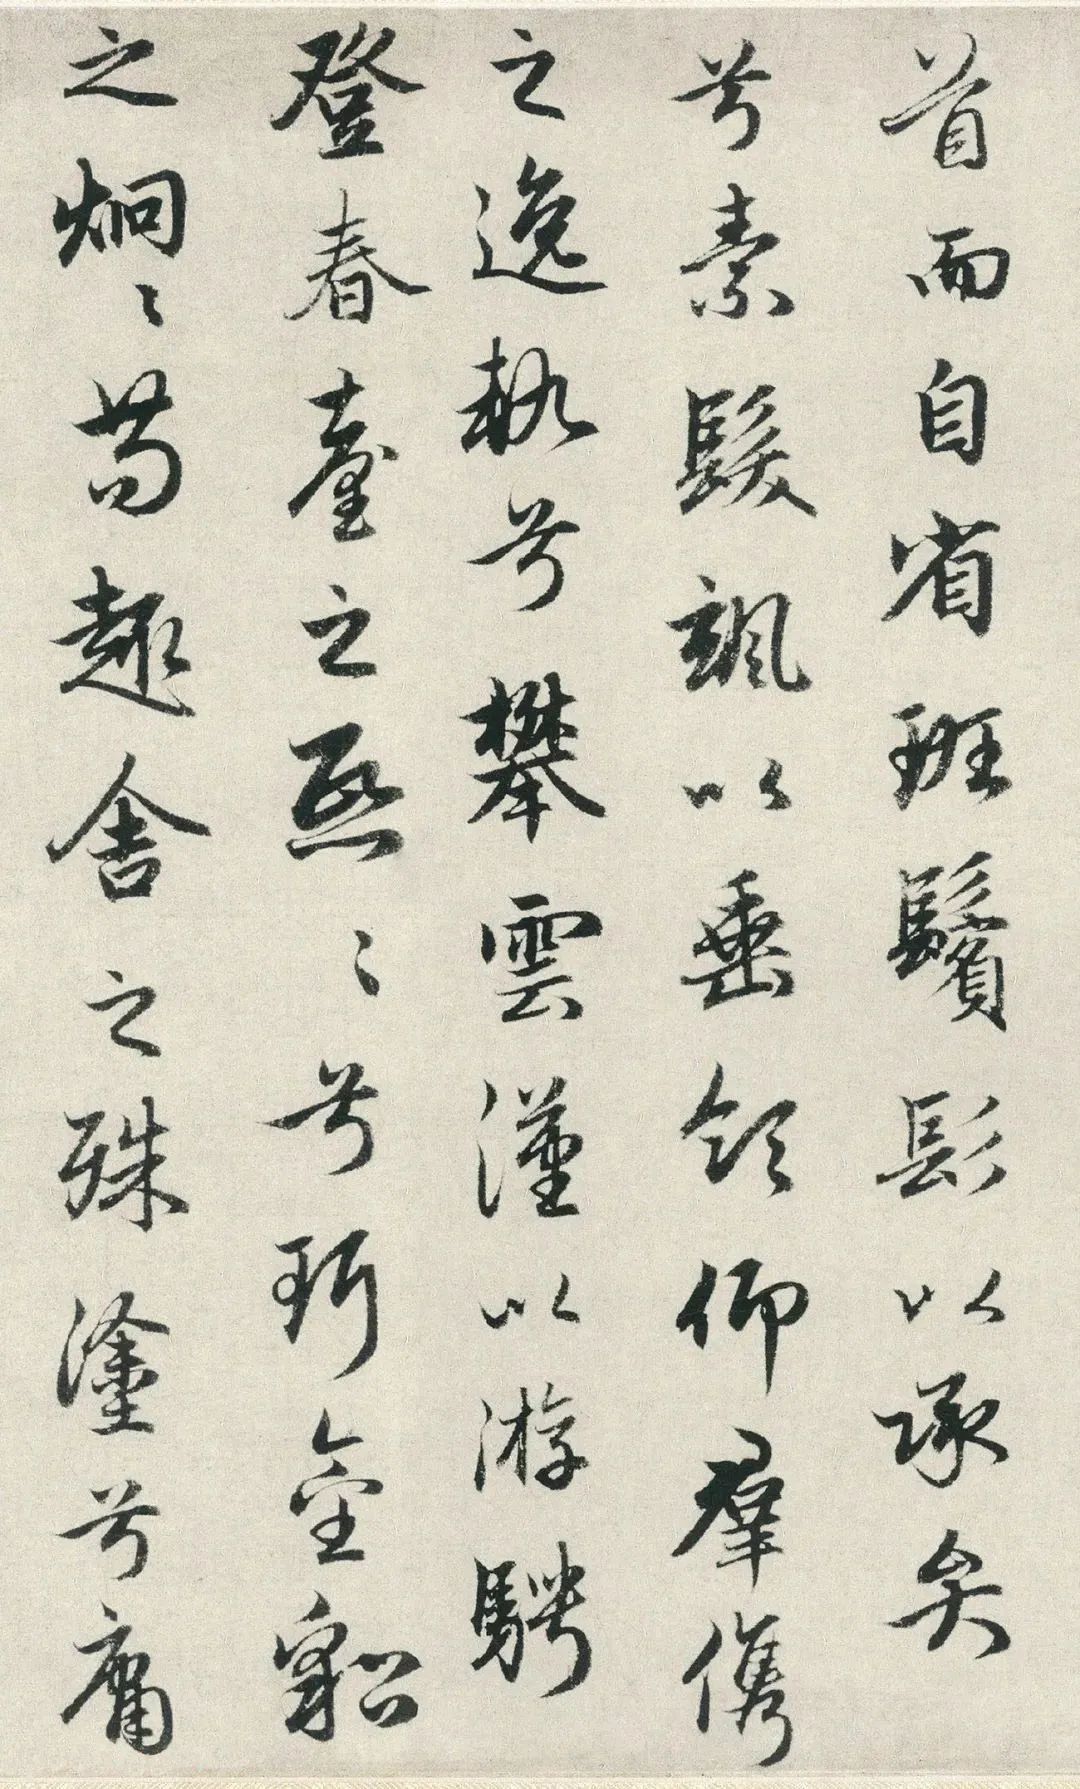 首而自省班鬢髟以承弁
兮素髮颯以垂領仰羣儁
之逸軌兮攀雲漢以游騁
登春臺之熙〻兮珥金貂
之炯〻苟趣舍之殊塗兮庸